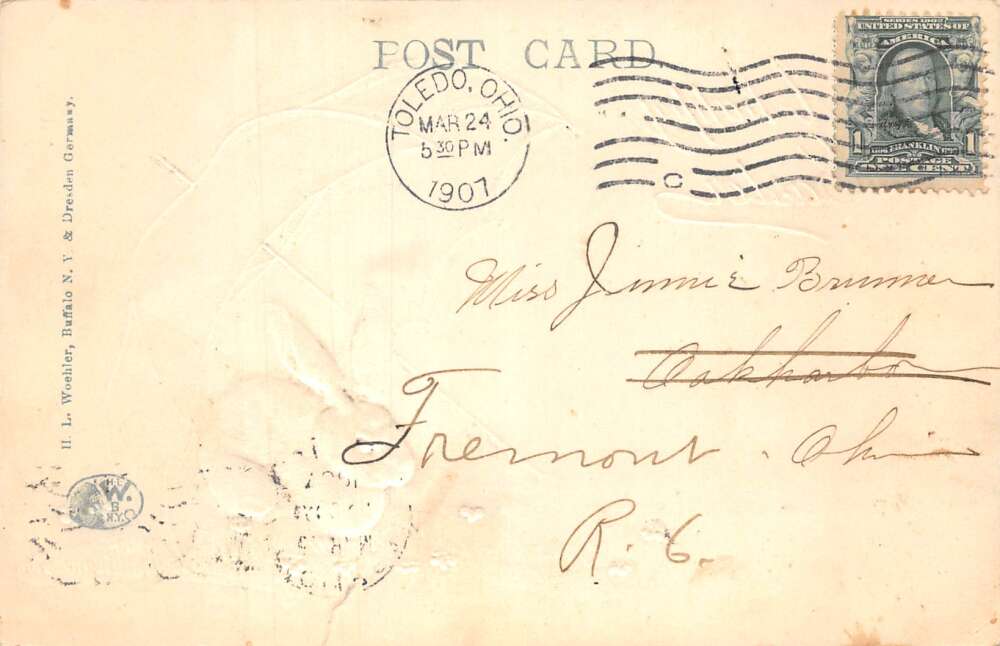 POST CARD
TOLEDO, OHIO.
MAR 24
5 30 PM
1907
C
SERIES 1902
UNITED STATES OF
AMERICA
1 FRANKLIN 1
POSTAGE
ONE CENT
H. L. Woehler, Buffalo N. Y. & Dresden Germany.
Miss Jennie Brunner
Oakharbor
Fremont, Ohio
R. 6.
W.
B
N.Y.